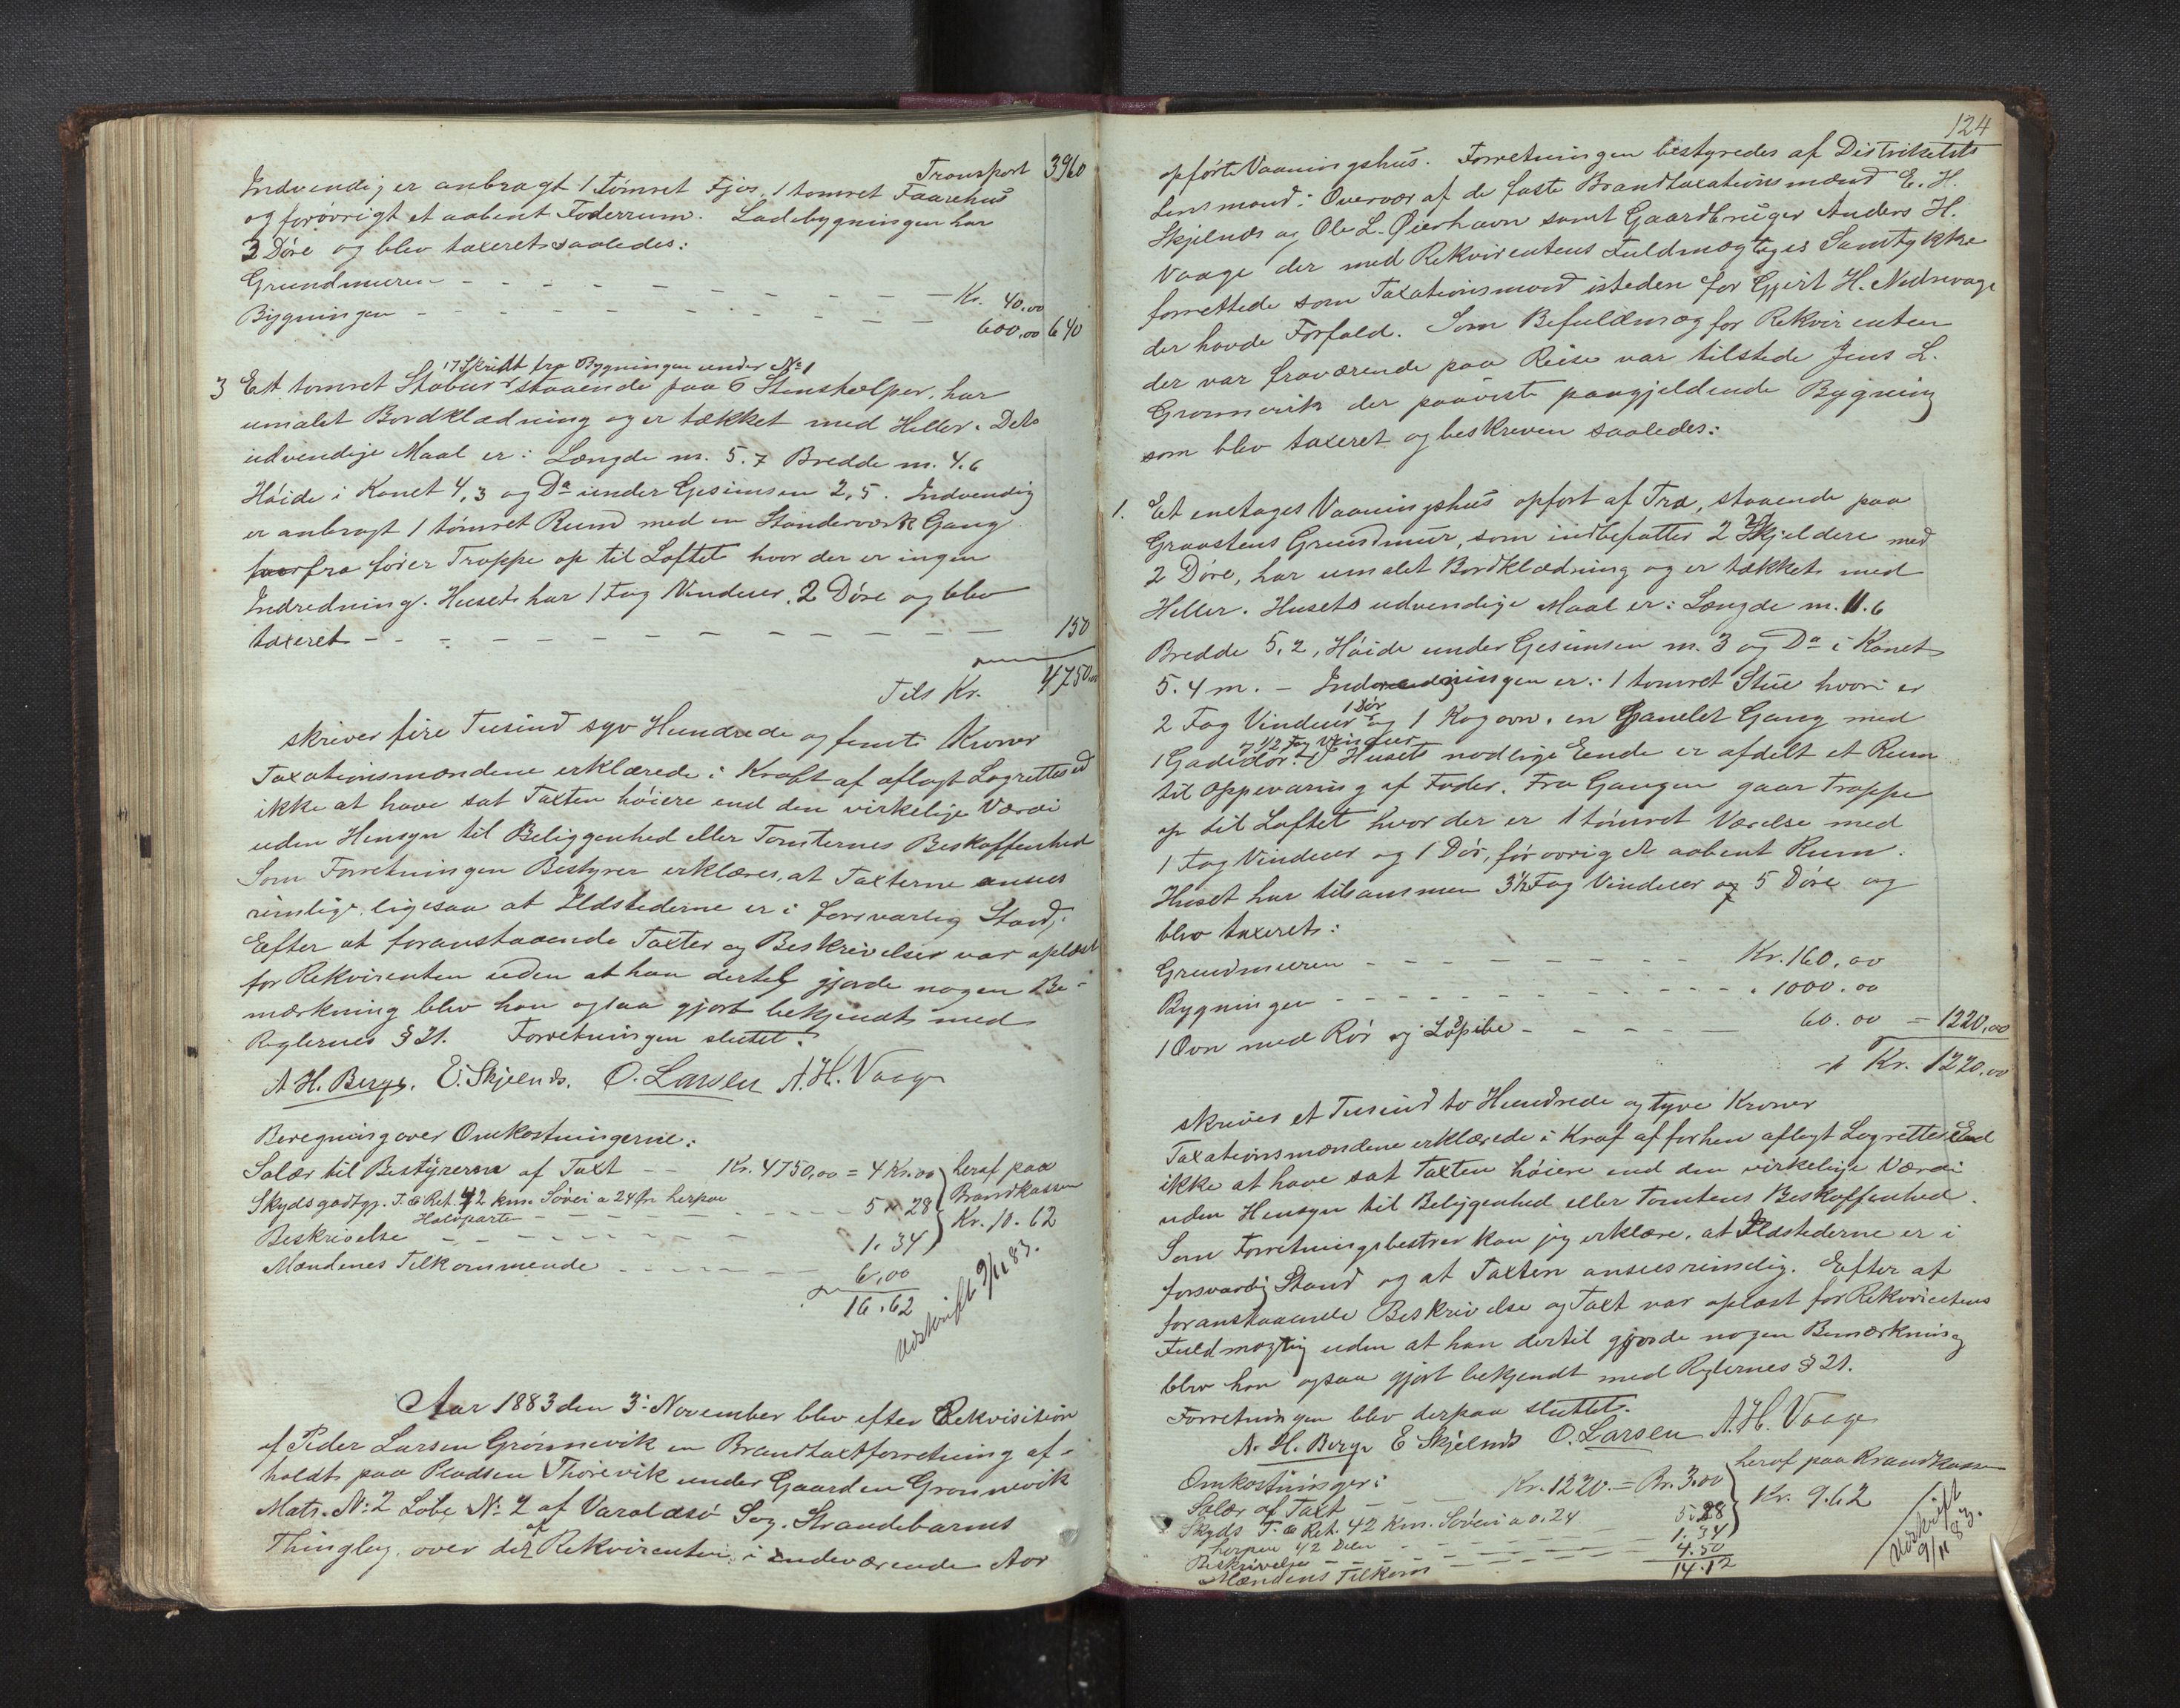 Transport 3960
Indvendig er anbragt 1 tømret Fjøs, 1 tømret Faarehus
og forøvrigt et aabent Foderrum. Ladebygningen har
3 Døre og blev taxeret saaledes:
Grundmuren - - - - - - - - - Kr. 40.00
Bygningen - - - - - - - - - - 600,00 640
17 Skridt fra Bygningen under No 1
3 Et tømret Stabur staaende paa 6 Stenstolper, har
umalet Bordklædning og er tækket med Heller. Dets
udvendige Maal er: Længde m. 5.7 Bredde m. 4.6
Høide i Rønet 4,3 og Do under Gesimsen 2,5. Indvendig
er anbragt 1 tømret Rum med en Standerværk Gang
hvorfra fører Trappe op til Loftet hvor der er ingen
Indredning. Huset har 1 Fag Vinduer, 2 Døre og blev
taxeret - - - - - - - - - - - 150
Tils Kr. 4750.00
skriver fire Tusind syv Hundrede og femti Kroner
Taxationsmændene erklærede i Kraft af aflagt Lagrettesed
ikke at have sat Taxten høiere end den virkelige Værdi
uden Hensyn til Beliggenhed eller Tomternes Beskaffenhed
Som Forretningen Bestyrer erklæres, at Taxterne ansees
rimlige, ligesaa at Ildstederne er i forsvarlig Stand,
Eefter at foranstaaende Taxter og Beskrivelser var oplæst
for Rekvirenten uden at han dertil gjorde nogen Be-
mærkning blev han ogsaa gjort bekjendt med
Reglernes § 21. Forretningen sluttet.
A. H. Berge. E. Skjelnæs. O. Larsen A. H. Vaage
Beregning over Omkostningerne:
Salær til Bestyreren af Taxt - - Kr. 4750,00 = 4 Kr.00 heraf paa
Skydsgodtgj. T. & Ret. 42 km. Søvei a 24 Øre herpaa 5 " 28 Brandkassen
Halvparten Kr. 10.62
Beskrivelse - - - - - - - 1. 34
Mændenes Tilkommende - - - - - - 6,00
16.62
Udskrift 9/11 83.
Aar 1883 den 3. November blev efter Rekvisition
af Peder Larsen Grønnevik en Brandtaxtforretning af-
holdt paa Pladsen Thorevik under Gaarden Grønnevik
Matr. No 2 Løbe No 2 af Varaldsø Sog. Strandebarms
Thinglag, over det af Rekvirenten i indeværende Aar
124
opførte Vaaningshus. Forretningen bestyredes af Distriktets
Lensmand i Overvær af de faste Brandtaxationsmænd E. H.
Skjelnæs og Ole L. Øierhavn samt Gaardbruger Anders H.
Vaage der med Rekvirentens Fuldmægtiges Samtykke
forrettede som Taxationsmand isteden for Gjert H. Nedrevage
der havde Forfald. Som Befuldmæg for Rekvirenten
der var fraværende paa Reise var tilstede Jens L.
Grønnevik der paaviste paagjeldende Bygning
som blev taxeret og beskreven saaledes:
1. Et enetages Vaaningshus opført af Træ, staaende paa
Graastens Grundmur, som indbefatter 2 Kjeldere med
2 Døre, har umalet Bordklædning og er tækket med
Heller. Husets udvendige Maal er: Længde m. 11.6
Bredde 5,2, Høide under Gesimsen m. 3 og Do i Rønet
5.4 m. - Indredningen er: 1 tømret Stue hvori er
1 Dør
2 Fag Vinduer og 1 Kogovn. en Panelet Gang med
og 1/2 Fag Vinduer
1 Gadedør. I Husets nodlige Eende er afdelt et Rum
til Oppevaring af Foder. Fra Gangen gaar Trappe
op til Loftet hvor der er 1 tømret Værelse med
1 Fag Vinduer og 1 Dør, førøvrig et aabent Rum.
Huset har tilsammen 3 1/2 Fag Vinduer og 5 Døre og
blev taxeret:
Grundmuren - - - - - - - - Kr. 160,00
Bygningen - - - - - - - - - - - 1000.00
1 Ovn med Rør og Løpibe - - - - - 60.00 = 1220,00
Kr. 1220.00
skrives et Tusind to Hundrede og tyve Kroner
Taxationsmændene erklærede i Kraf af forhen aflagt Lagrettes Eed
ikke at have sat Taxten høiere end den virkelige Værdi
uden Hensyn til Beliggenhed eller Tomtens Beskaffenhed.
Som Forretningsbestyrer kan jeg erklære, at Ildstederne er i
forsvarlig Stand og at Taxten ansees rimelig. Eefter af
foranstaaende Beskrivelse og Taxt var oplæst for Rekvirentens
Fuldmægtig uden at han dertil gjorde nogen Bemærkning
blev han ogsaa gjort bekjendt med Reglernes § 21.
Forretningen blev derpaa sluttet.
A. H. Berge E Skjelnæs O. Larsen A. H. Vaage
Omkostninger: heraf paa Brandkassen
Salær af Taxt - - - Kr. 1220. = Kr. 3.00 Kr. 9.62
Skyds T. & Ret. 42 Km. Søvei a 0.24 5.28
herpaa 1/2 Delen
Beskrivelse - - - - - - 1.34
Mændens Tilkom - - - - 4.50
14.12
Udskrift
9/11 83.